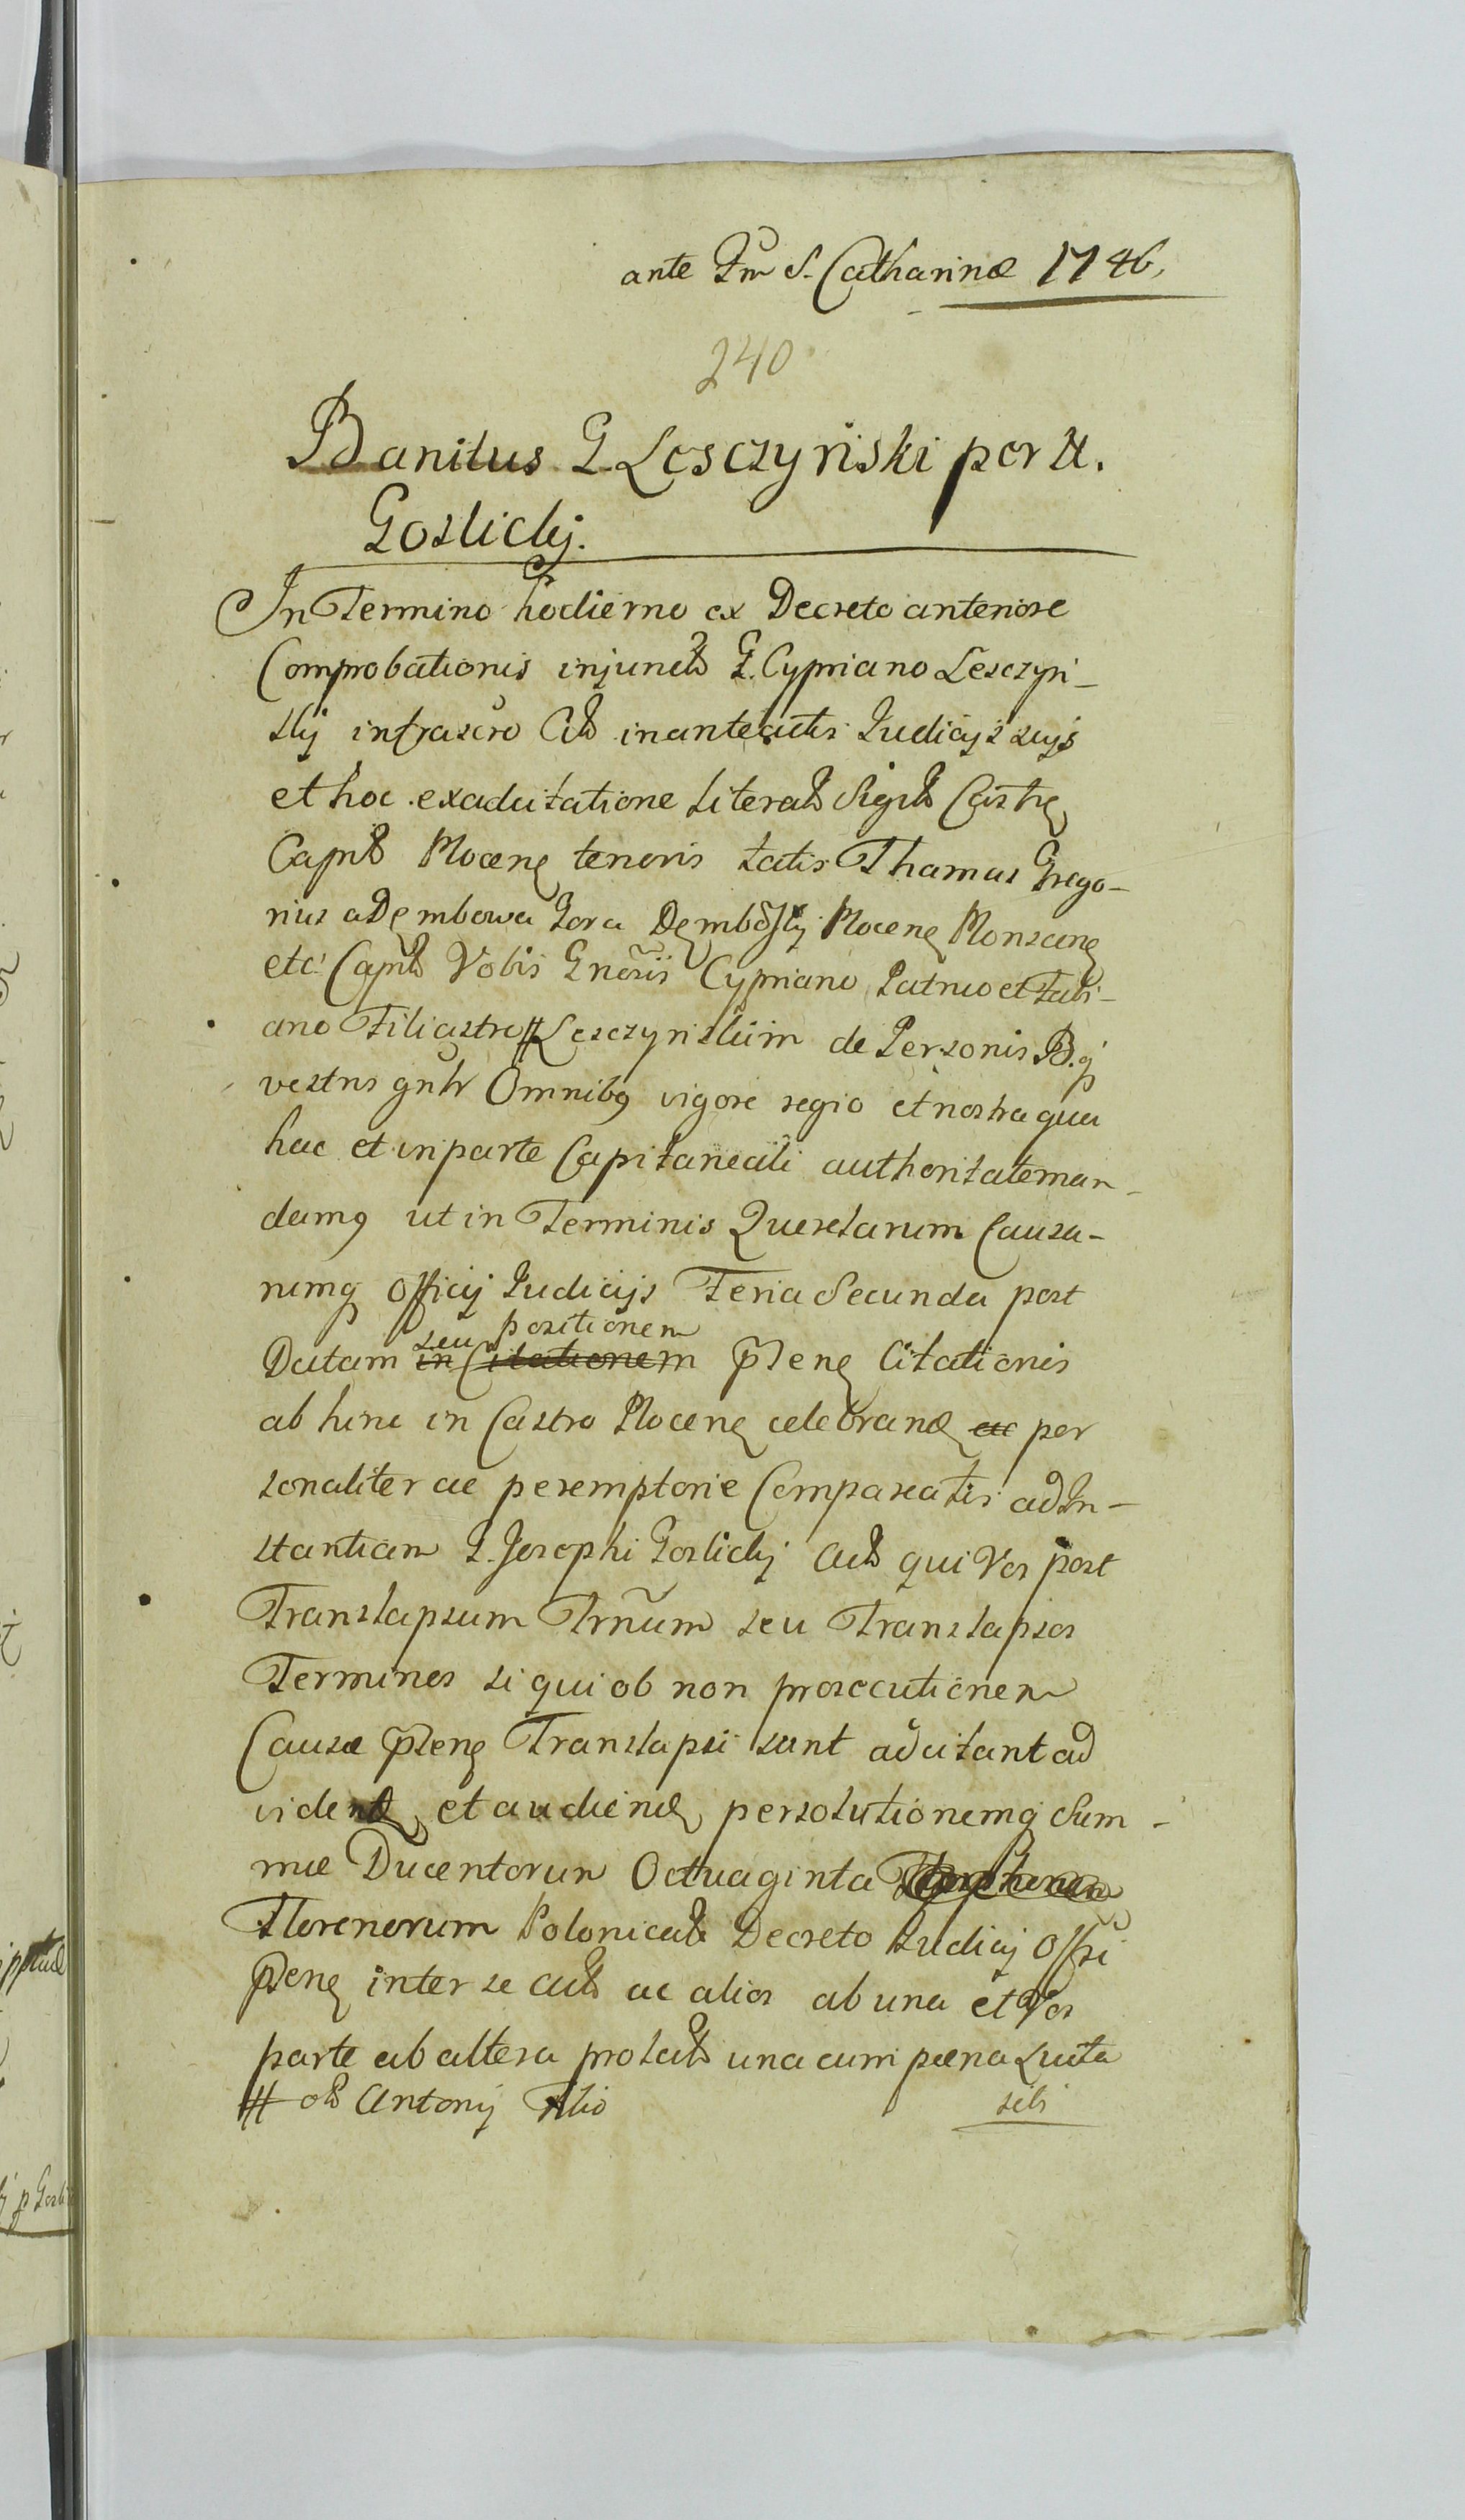 ante Fm S. Catharinæ 1746,
240
Banitus G. Lesczynski per G.
Goslicki.
In Termino hodierno ex Decreto anteriore
Comprobationis injuncto G. Cypriano Lesczyn-
ski infrascro Cito in anteactis Judicijs suis
et hoc ex adcitatione Literali Sigillo Castren
Capnli Plocen tenoris talis Thomas Grego-
rius a Dembowa Gora Dembowski Plocen Plonscen
etc Capnus Vobis Gnosis Cypriano Patruo et Fabi-
ano Filiastro # Lesczynskim de Personis B.q
vestris gnlr Omnibq vigore regio et nostra qua
hac et in parte Capitaneali authoritate man-
damq ut in Terminis Querelarum Causa-
rumq Officij Judicijs Feria Secunda post
seu positionem
Datam in Citationem pnten Citationis
ab hinc in Castro Plocen celebran ac per
sonaliter ac peremptorie Compareatis ad In-
stantiam G. Josephi Goslicki Acts qui Vos post
Translapsum Trnum seu Translapsos
Terminos si qui ob non prosecutionem
Causæ pnten Translapsi sunt adcitant ad
viden et audien persolutionemq Sum-
mæ Ducentorum Octuaginta
Florenorum Polonicals Decreto Judicij Offsi
pnten inter se Acts ac alios ab una et Vos
parte ab altera prolato una cum pæna Lucta
# ols Antonij Filio
sibi